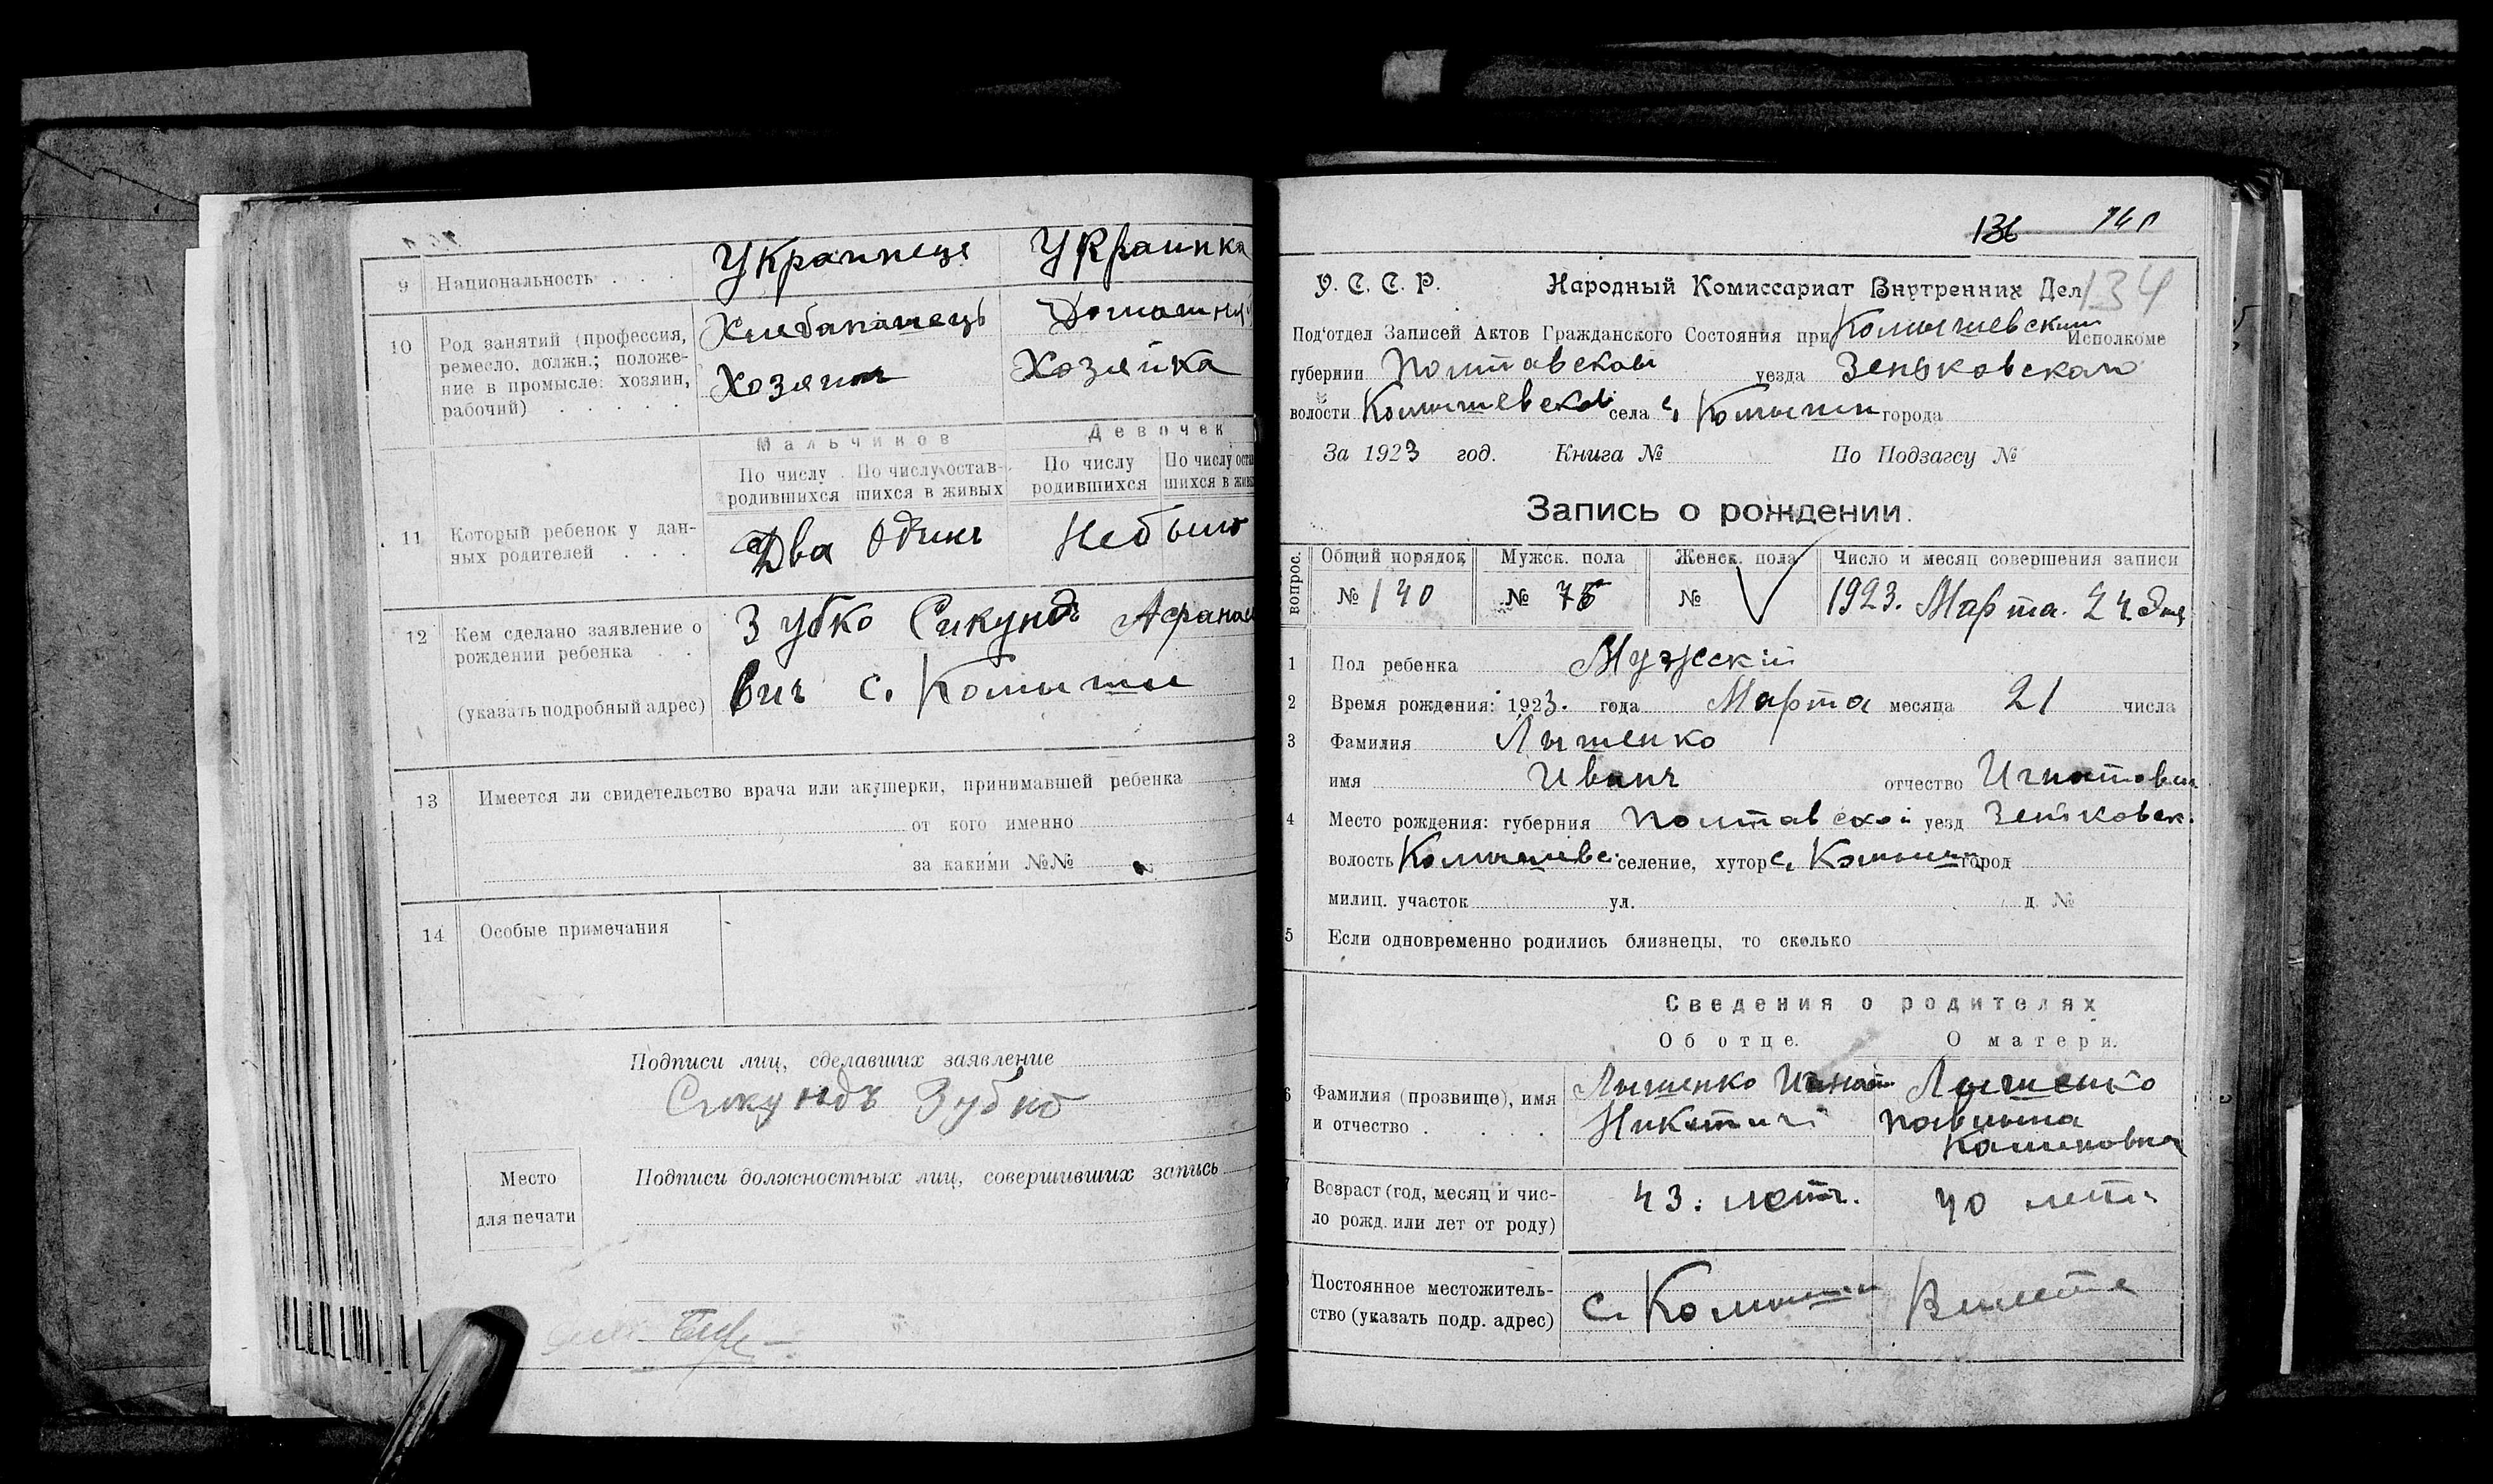 9 Национальность . . . Украинецъ Украинка
10 Род занятий (профессия, ремесло, должн.; положе-
ние в промысле: хозяин,
рабочий) . . . . .
Хлебапашець Домашняя
Хозяинъ Хозяйка
Мальчиков Девочек
По числу родившихся По числу остав-
шихся в живых По числу родившихся По числу оста
шихся в жив
11 Который ребенок у дан-
ных родителей . . .
Два Одинъ Небыло
12 Кем сделано заявление о
рождении ребенка . .
(указать подробный адрес)
Зубко Сикундъ Афанас
вич с. Комыши
13 Имеется ли свидетельство врача или акушерки, принимавшей ребенка
от кого именно
за какими №№
14 Особые примечания
Подписи лиц, сделавших заявление
Сикундъ Зубко
Место
для печати
Подписи должностных лиц, совершивших запись
136 141
134
У. С. С. Р. Народный Комиссариат Внутренних Дел
Под'отдел Записей Актов Гражданского Состояния при Комышевским Исполкоме
губернии Полтавской уезда Зеньковскаго
волости Комышевской села с, Комыши города
За 1923 год. Книга № По Подзагсу №
Запись о рождении.
вопрос. Общий порядок Мужск. пола Женск. пола Число и месяц совершения записи
№ 140 № 76 № 1923. Марта. 24 дня
1 Пол ребенка Мужескій
2 Время рождения: 1923. года Марта месяца 21 числа
3 Фамилия Лышенко
имя Иванъ отчество Игнатович
4 Место рождения: губерния Полтавской уезд Зеньковск.
волость Комышевс. селение, хутор с, Комыши город
милиц. участок ул. д. №
5 Если одновременно родились близнецы, то сколько
Сведения о родителях
Об отце. О матери.
6 Фамилия (прозвище), имя
и отчество . . . .
Лышенко Игнат Лышенко
Никитич
7 Возраст (год, месяц и чис-
ло рожд. или лет от роду)
43: летъ. 40 летъ
Постоянное местожитель-
ство (указать подр. адрес)
с. Комыши Вместе